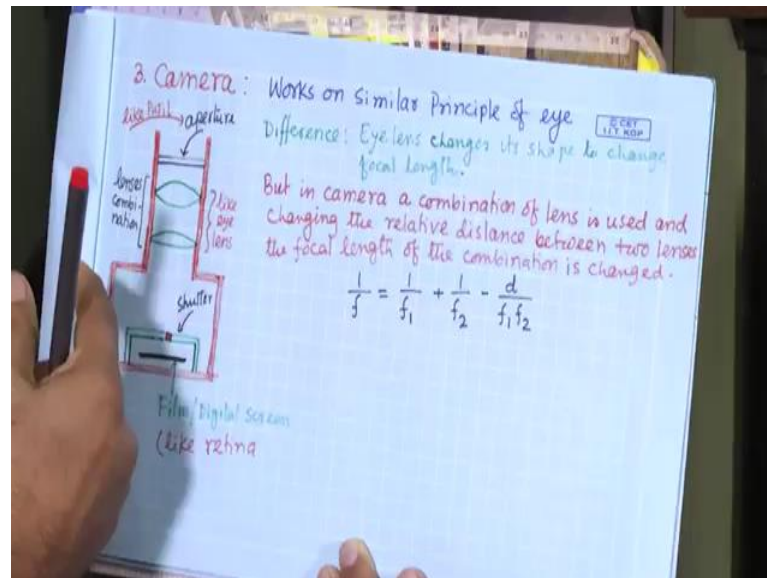 3. Camera: Works on Similar Principle of eye
© CET
I.I.T. KGP
Difference: Eye lens changes its shape to change
focal length.
But in camera a combination of lens is used and
changing the relative distance between two lenses
the focal length of the combination is changed.
1/f = 1/f₁ + 1/f₂ - d/f₁f₂
like Pupil → aperture
lenses
combi-
nation
like
eye
lens
Shutter
Film/Digital Screen
(like retina